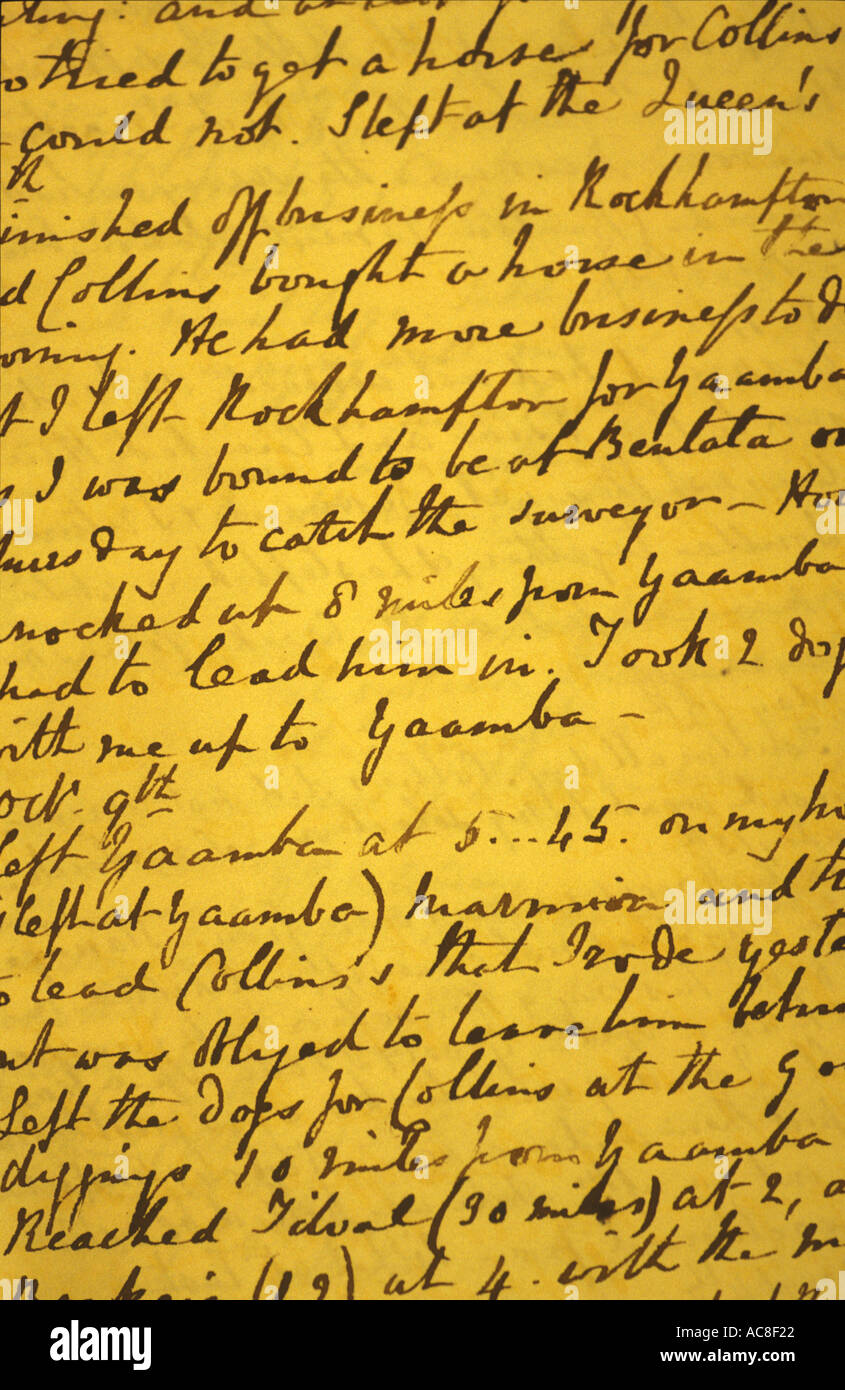 and
tried to get a horse for Collins
could not. Slept at the Queen's
th
inished off business in Rockhampton
d Collins bought a horse in the
orning. He had more business to d
t I left Rockhampton for Yaamba
s I was bound to be at Bentata on
hursday to catch the surveyor – Ho
nocked up 8 miles from Yaamba
had to lead him in. Took 2 dogs
with me up to Yaamba –
Oct. 9th
Left Yaamba at 5...45. on my h
(left at Yaamba) Marmion and t
to lead Collins's that I rode yeste
ut was obliged to leave him betw
Left the dogs for Collins at the Go
diggings 10 miles from Yaamba
Reached Tilval (30 miles) at 2, a
(12) at 4. with the m
a alamy
Image ID: AC8F22
www.alamy.com